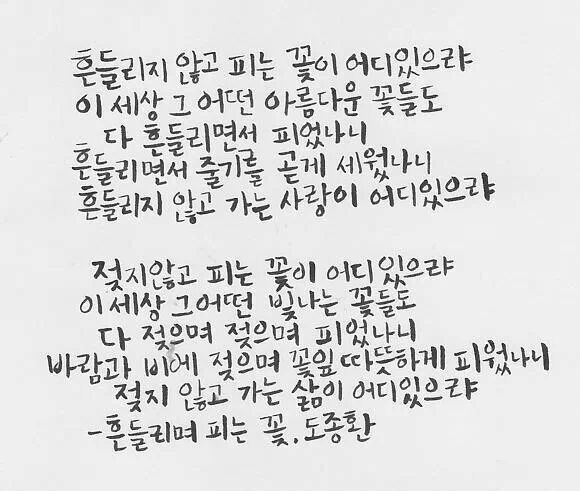 흔들리지 않고 피는 꽃이 어디있으랴
이 세상 그 어떤 아름다운 꽃들도
다 흔들리면서 피었나니
흔들리면서 줄기를 곧게 세웠나니
흔들리지 않고 가는 사랑이 어디있으랴
젖지않고 피는 꽃이 어디있으랴
이 세상 그 어떤 빛나는 꽃들도
다 젖으며 젖으며 피었나니
바람과 비에 젖으며 꽃잎 따뜻하게 피웠나니
젖지 않고 가는 삶이 어디있으랴
-흔들리며 피는 꽃. 도종환